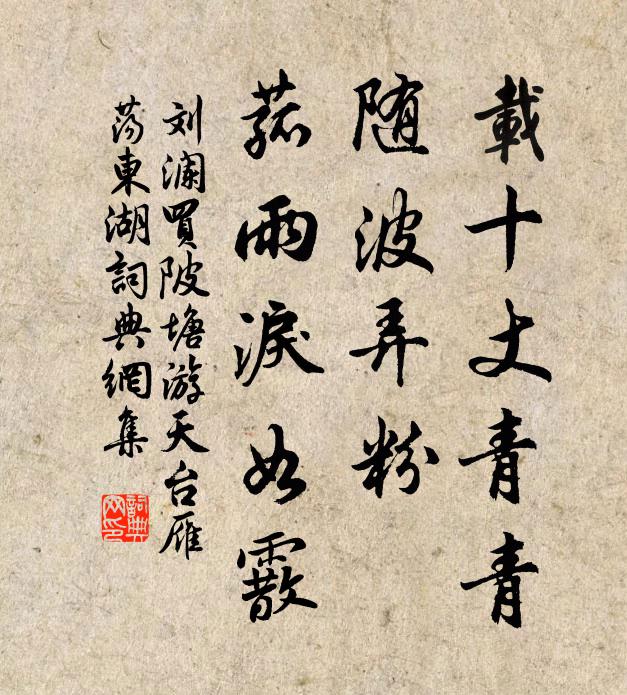 載十丈青青
随波弄粉
菰雨淚如霰
刘瀾買陂塘游天台雁
蕩東湖詞典網集
詞典網印